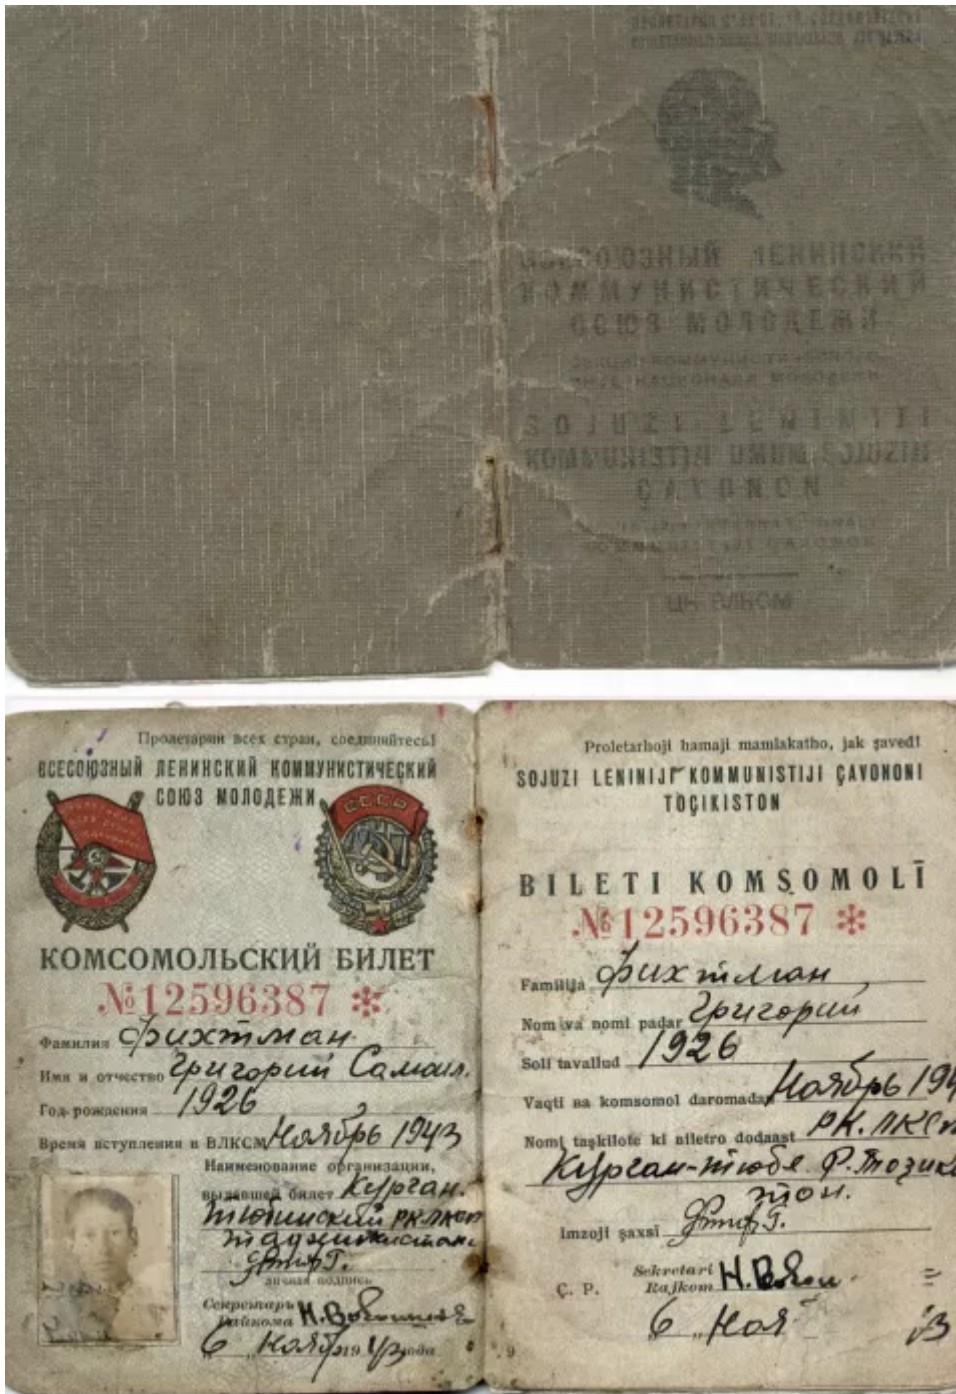 ВСЕСОЮЗНЫЙ ЛЕНИНСКИЙ
КОММУНИСТИЧЕСКИЙ
СОЮЗ МОЛОДЕЖИ
СЕКЦИЯ КОММУНИСТИЧЕСКОГО
ИНТЕРНАЦИОНАЛА МОЛОДЕЖИ
SOJUZI LENINIJI
KOMMUNISTIJI UMUMISOJUZIJI
ÇAVONON
ЦК ВЛКСМ
Пролетарии всех стран, соединяйтесь!
ВСЕСОЮЗНЫЙ ЛЕНИНСКИЙ КОММУНИСТИЧЕСКИЙ
СОЮЗ МОЛОДЕЖИ
СССР
КОМСОМОЛЬСКИЙ БИЛЕТ
№12596387 *
Фамилия Фихтман
Имя и отчество Григорий Самоил.
Год рождения 1926
Время вступления в ВЛКСМ Ноябрь 1943
Наименование организации,
выдавшей билет Курган.
Тюбинский РК ЛКСМ
Таджикистана
личная подпись
Секретарь
Райкома Н.
6 Ноя 1943 года
Proletarhoji hamaji mamlakatho, jak şaved!
SOJUZI LENINIJI KOMMUNISTIJI ÇAVONONI
TOÇIKISTON
BILETI KOMSOMOLĪ
№12596387 *
Familija Фихтман
Nom va nomi padar Григорий
Soli tavallud 1926
Vaqti ba komsomol daromadan Ноябрь 194
Nomi taşkilote ki biletro dodaast РК.ЛКСМ
Курган-тюбе Р. Тозики
тон.
Imzoji şaxsi
Sekretari
Ç. P. Rajkom Н.
6 Ноя